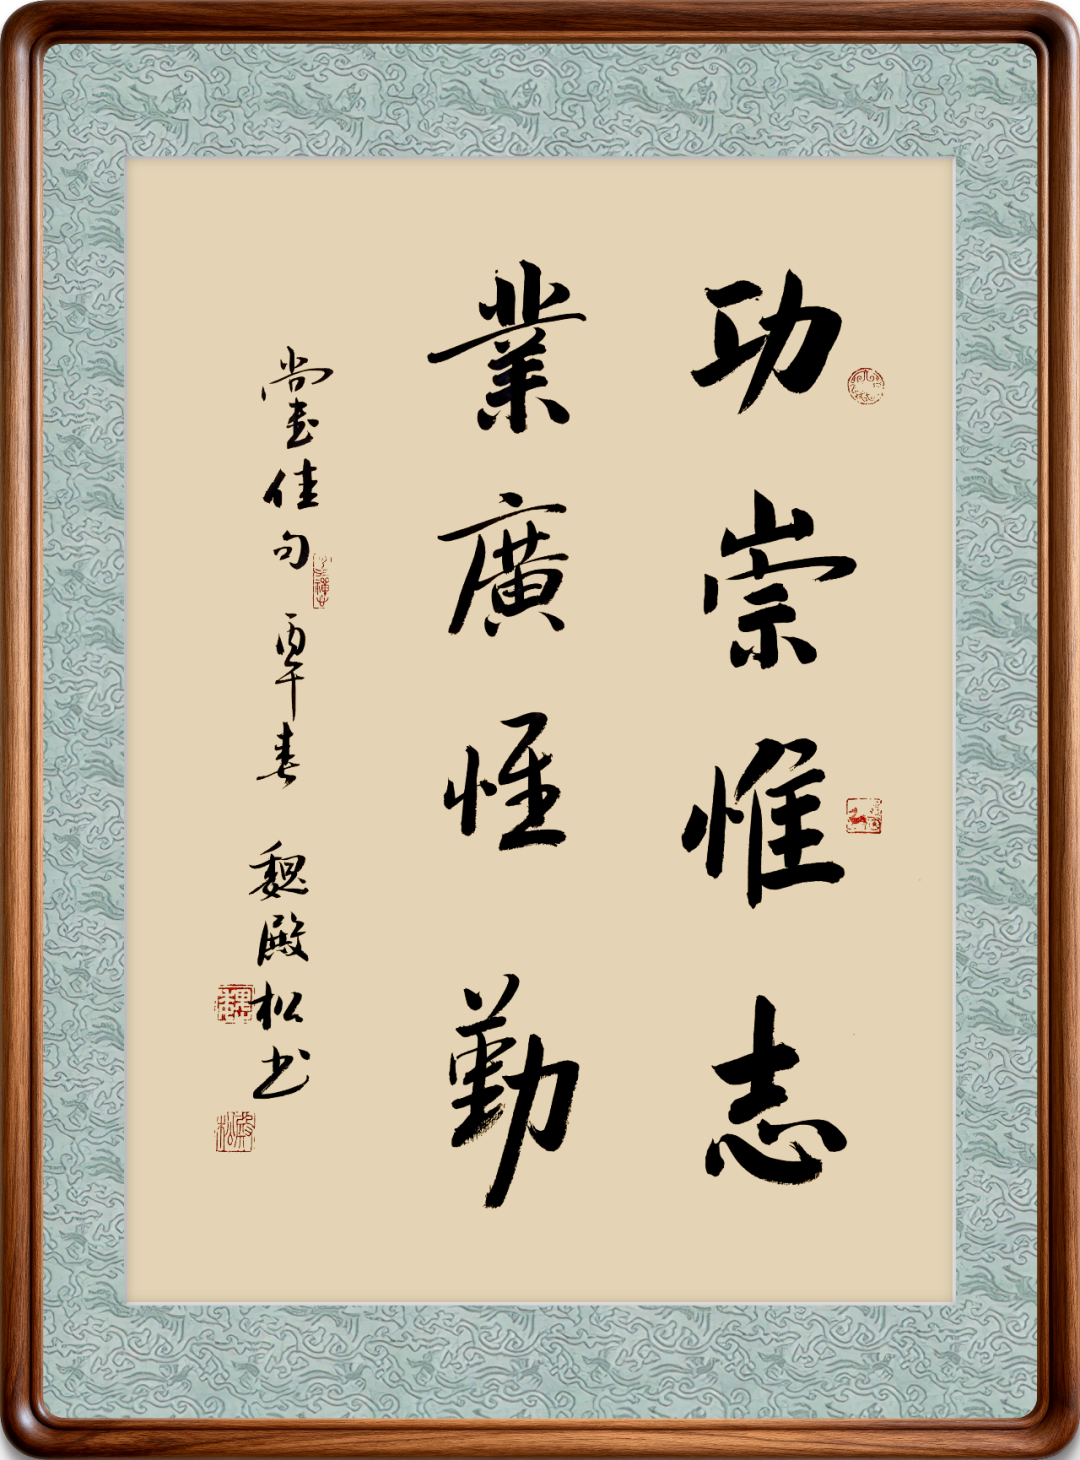 功崇惟志
業廣惟勤
尚書佳句 丙午春 魏殿松书
魏
殿松